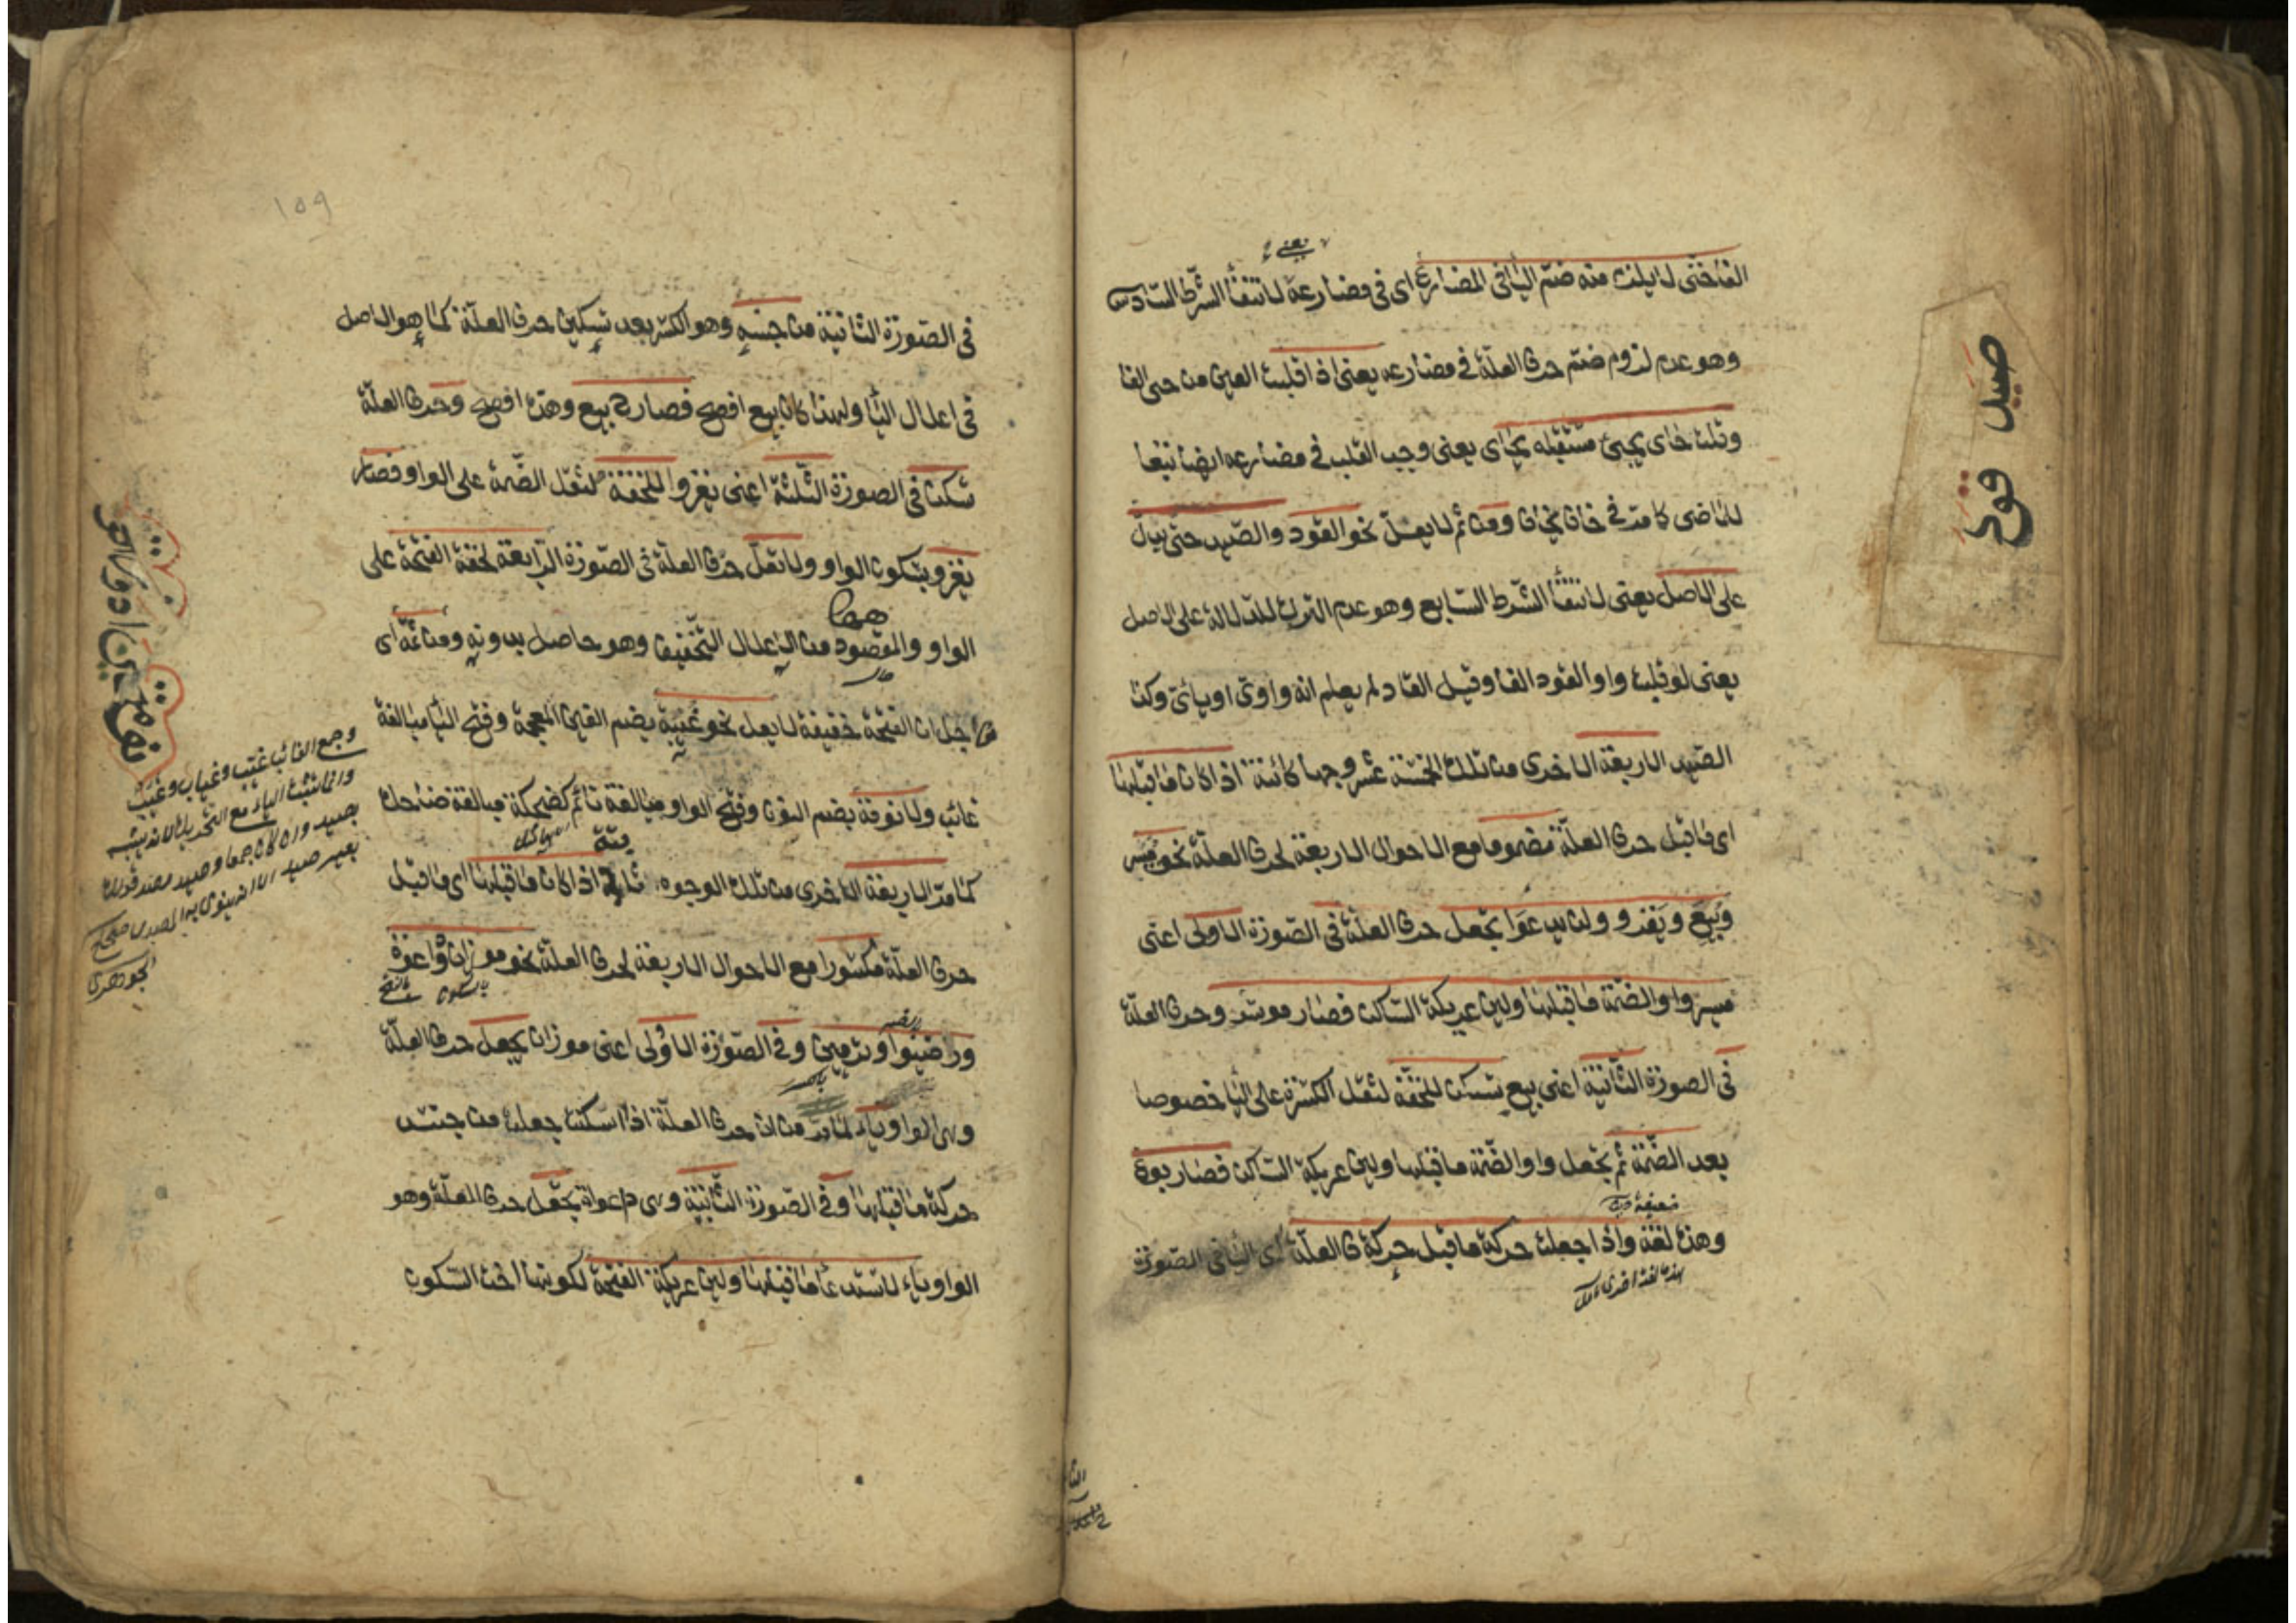 الفا حتى لا يلزم منه ضم اليا فى المضارع اى فى مضارعه لانتفأ الشرط السادس
يعنى
وهو عدم لزوم ضم حرف العلة فى مضارعه يعنى اذا قلبت العين من حى الفا
وقلت حاى يجئ مستقبله يحاى يعنى وجب القلب فى مضارعه ايضا تبعا
للماضى كما مر فى خاف يخاف ومن ثم لا يعل نحو القود والصيد حتى يدل
على الاصل يعنى لانتفأ الشرط السابع وهو عدم الترك للدلالة على الاصل
يعنى لو قلبت واو القود الفا وقيل القاد لم يعلم انه واوى او يائى وكذا
الصيد الاربعة الاخرى من تلك الخمسة عشر وجها كائنة اذا كان ما قبلها
اى ما قبل حرف العلة مضموما مع الاحوال الاربعة لحرف العلة نحو ميسر
وبيع ويغزو ولن يدعوا يجعل حرف العلة فى الصورة الاولى اعنى
ميسر واوا لضمة ما قبلها ولين عريكة الساكن فصار موسر وحرف العلة
فى الصورة الثانية اعنى بيع يسكن للخفة لثقل الكسرة على اليا خصوصا
بعد الضمة ثم يجعل واوا لضمة ما قبلها ولين عريكة الساكن فصار بوع
ضعيفة
وهذه لغة واذا جعلت حركة ما قبل حركة ف العلة اى اليا فى الصورة
هذه لغة اخرى
صيد قود
١٥٩
فى الصورة الثانية من جنسه وهو الكسر بعد تسكين حرف العلة كما هو الاصل
فى اعلال اليا ولهذا كان بيع افصح فصار ح بيع وهذه افصح وحرف العلة
تسكن فى الصورة الثلثة اعنى يغزو للخفة لثقل الضمة على الواو فصار
يغزو بسكون الواو ولا تعل حرف العلة فى الصورة الرابعة لخفة الفتحة على
الواو والمقصود من الاعلال التخفيف وهو حاصل بدونه ومن ثمة اى
ههنا
من اجل ان الفتحة خفيفة لا يعل نحو غيبة بضم الغين المعجمة وفتح اليا مبالغة
غائب ولا نومة بضم النون وفتح الواو مبالغة نائم كضحكة مبالغة ضاحك
كما مر الاربعة الاخرى من تلك الوجوه اذا كان ما قبلها اى ما قبل
حرف العلة مكسورا مع الاحوال الاربعة لحرف العلة نحو موزان وداعوة
بالسكون بالفتح
ورضيوا وترميين وفى الصورة الاولى اعنى موزان يجعل حرف العلة
وهى الواو ياء لما مر من ان حرف العلة اذا اسكنت جعلت من جنس
حركة ما قبلها وفى الصورة الثانية وهى داعوة يجعل حرف العلة وهو
الواو ياء لاستدعا ما قبلها ولين عريكة الفتحة لكونها اخت السكون
وجمع الغائب غيب وغياب وغيب
وانما ثبت الياء مع التحريك لانه شبه
بصيد وان كان جمعا وصيد مصدر قولك
بعير اصيد لانه ينوى به المصدر صحاح
الجوهرى